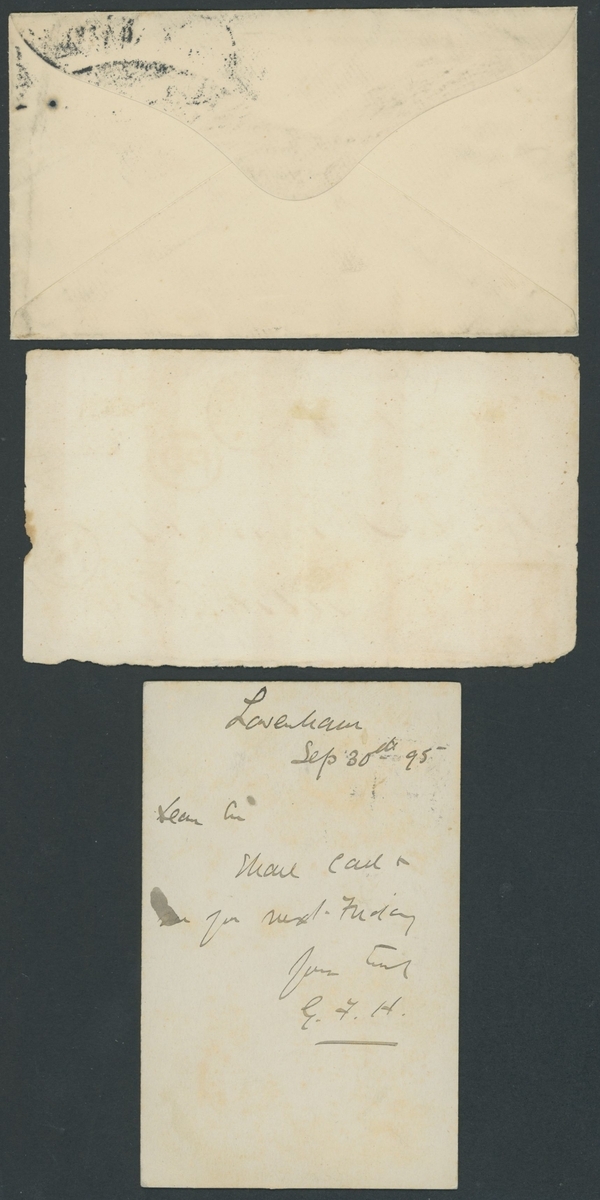 Lavenham
Sep 30th 95
Dear Sir
Shall call &
see you next Friday
Yours truly
G. F. H.